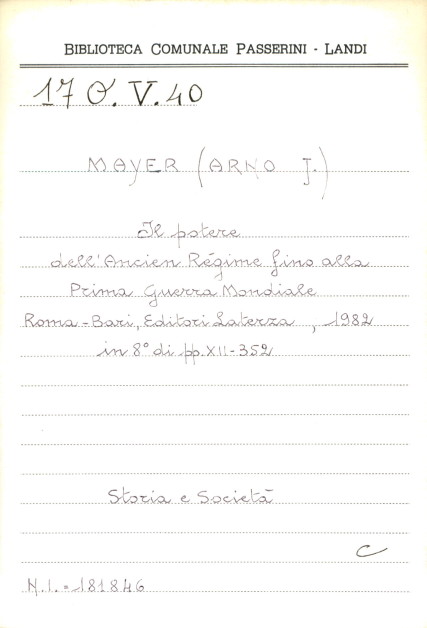 BIBLIOTECA COMUNALE PASSERINI - LANDI
17 O. V. 40
MAYER (ARNO J.)
Il potere
dell'Ancien Régime fino alla
Prima Guerra Mondiale
Roma - Bari, Editori Laterza, 1982
in 8° di pp. XII-352
Storia e Società
C
N.I. = 181846